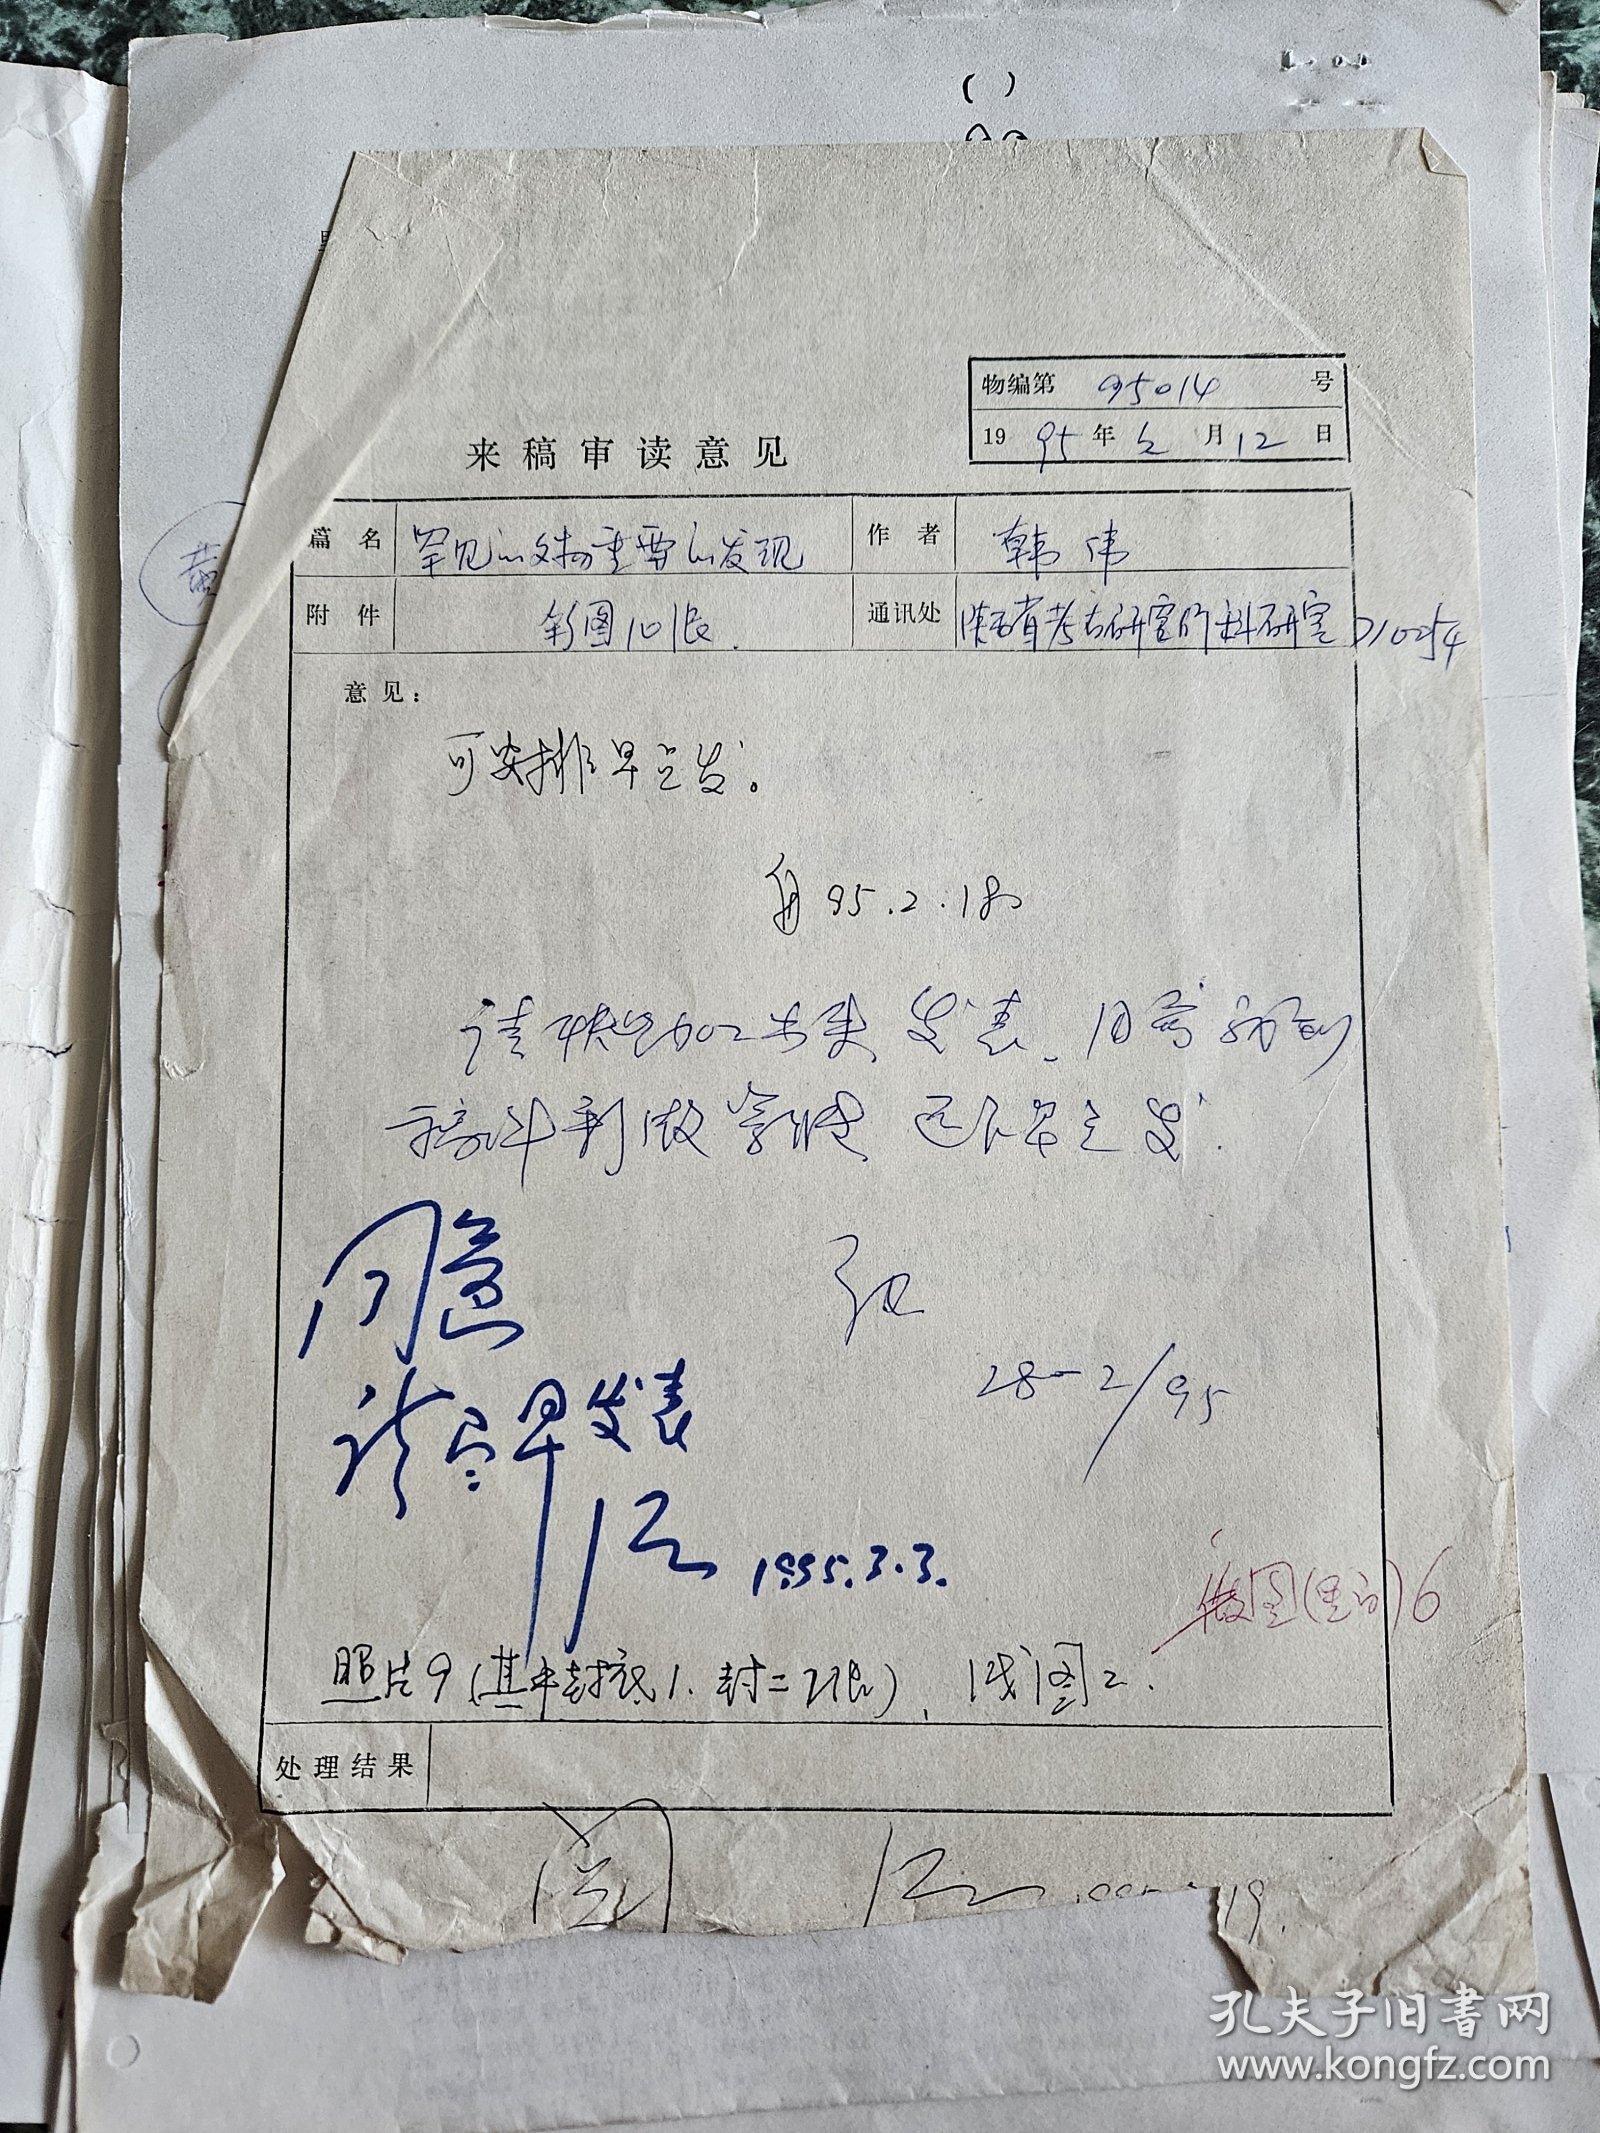 物编第 95014 号
1995年2月12日
来稿审读意见
篇名 罕见的文物重要的发现 作者 韩伟
附件 彩图10张. 通讯处 陕西省考古研究所科研室 710054
意见：
可安排早点发。
95.2.18日
请快点加工出来发表、
稿 还是早点发.
28-2/95
同意
请尽早发表
1995.3.3.
图(黑白)6
照片9(其中封底1.封二2张)、线图2.
处理结果
19.
孔夫子旧书网
www.kongfz.com